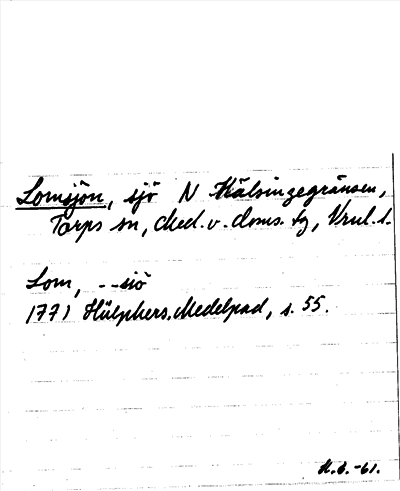 Lomsjön, sjö N Hälsingegränsen,
Torps sn, Med. v. doms. tg, Vrnl. l.
Lom, --siö
1771 Hülphers, Medelpad, s. 55.
-61.